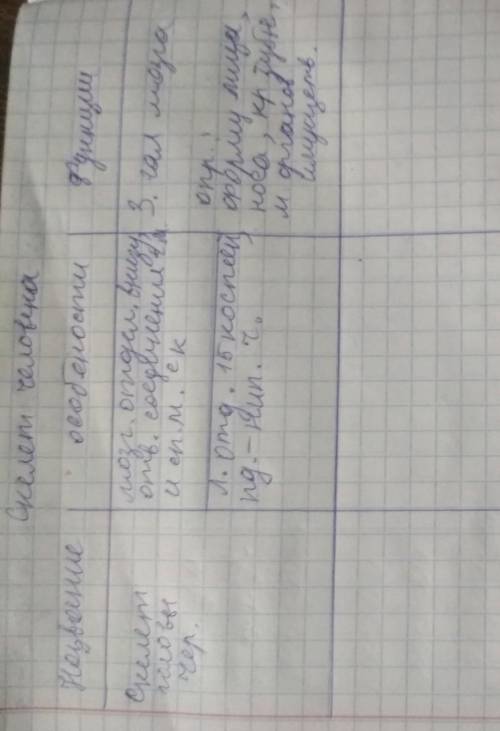 Скелет человека
Название
особености
функции
Скелет
головы
чер.
мозг. отдел, внизу
отв. соединением г/м
и сп.м. с к
З. гол мозга
л. отд. 15 костей,
пд. – нип. ч.
опр.:
форму лица,
носа, кр зубы,
и органов